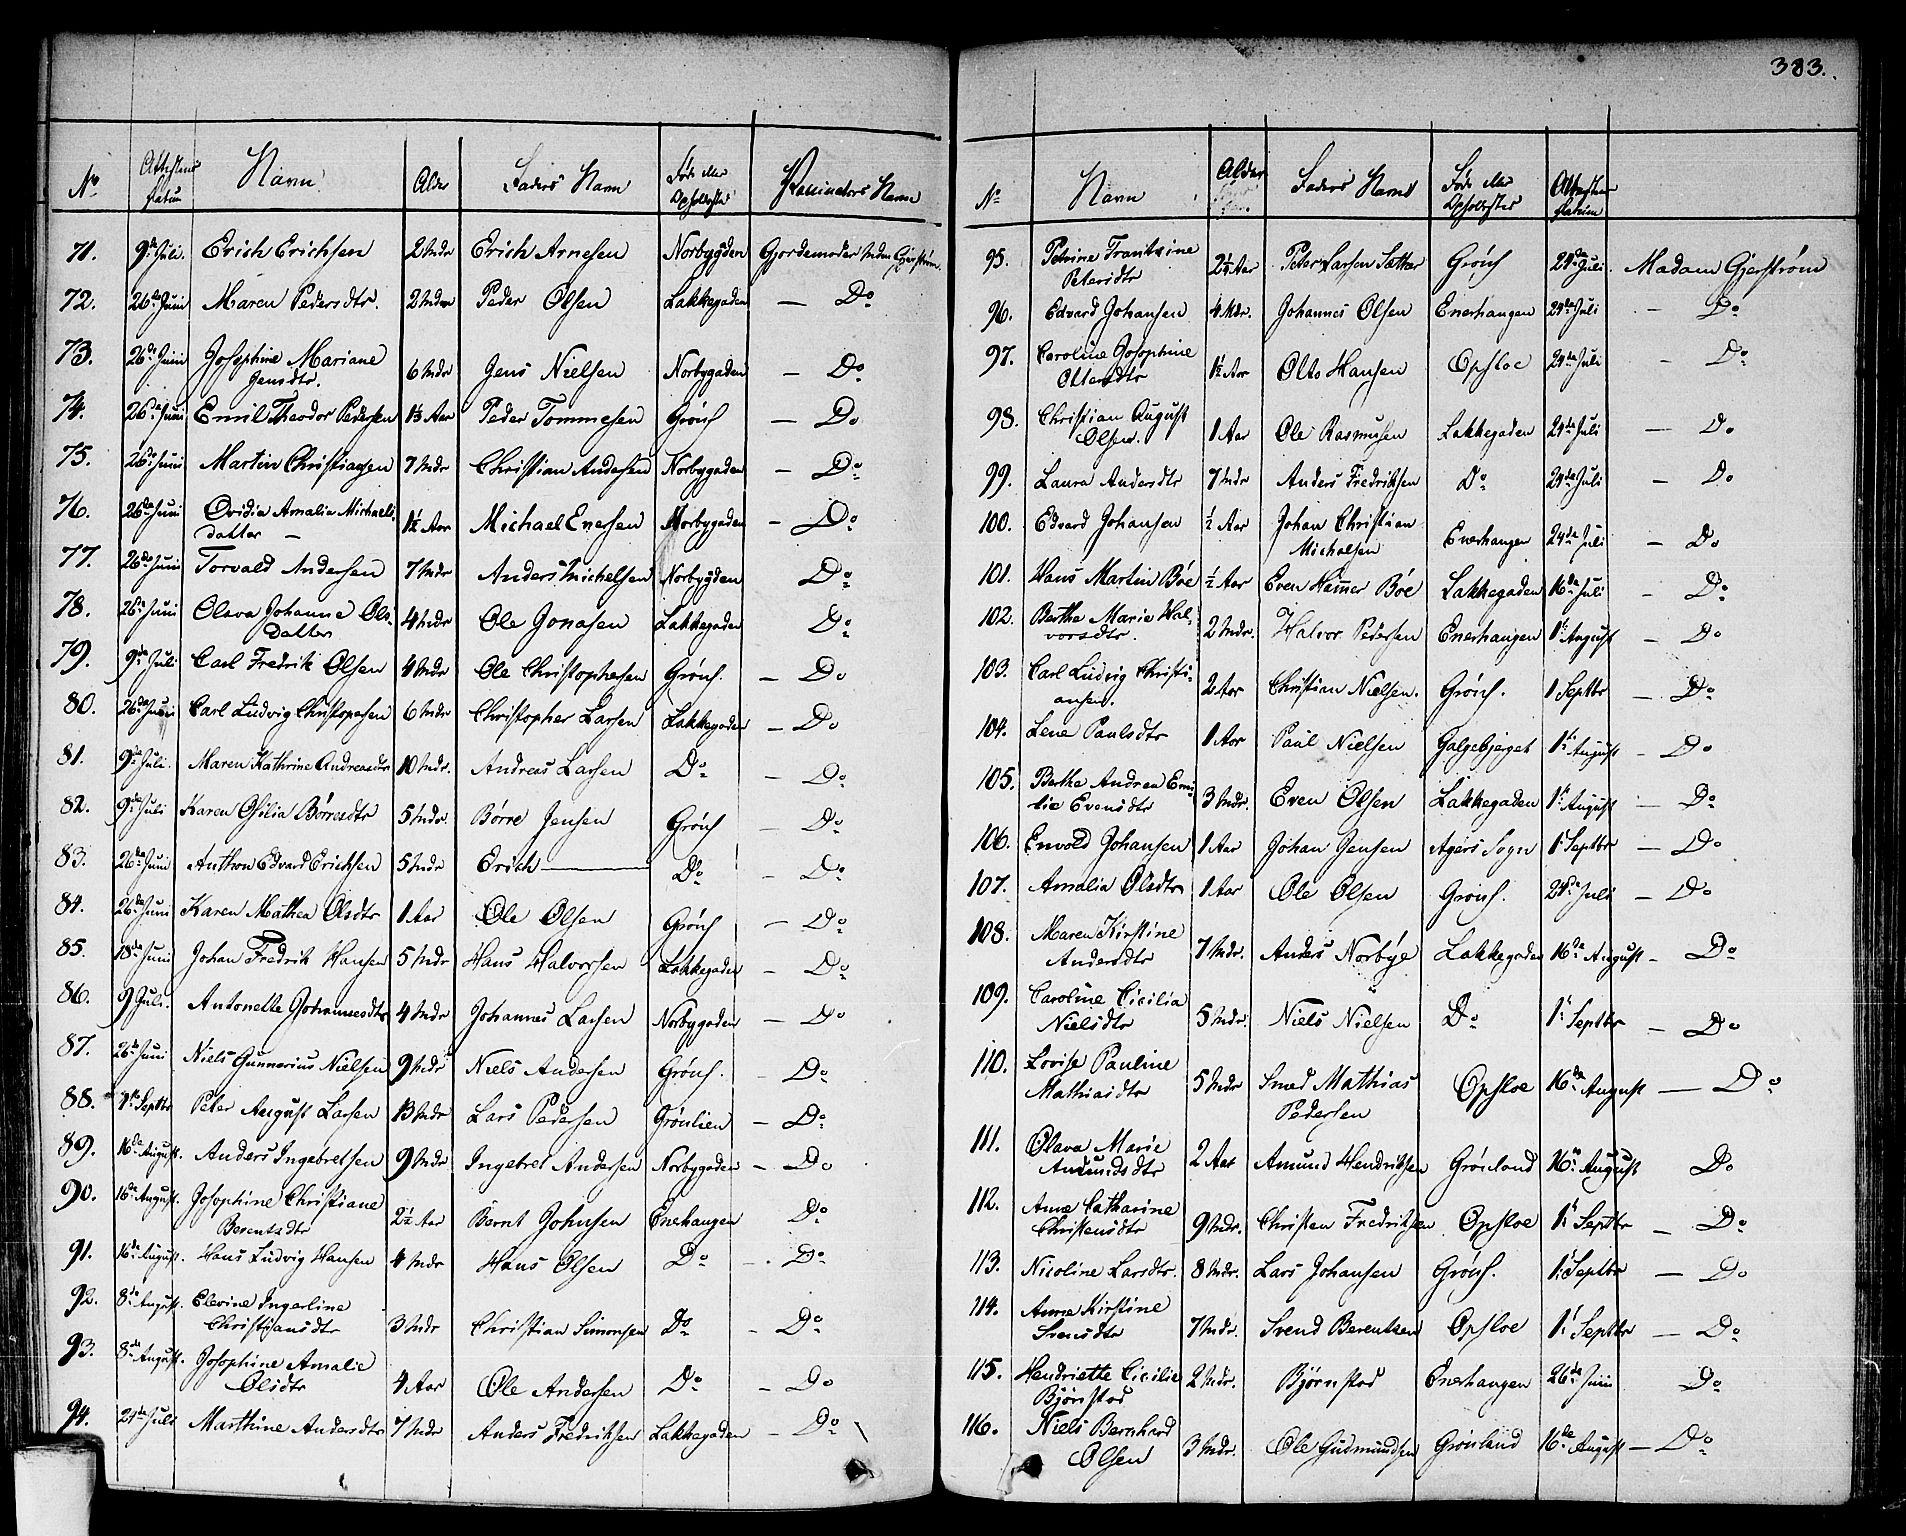 383.
No Attestens Datum Navn Alder Faders Navn Føde eller Opholdssted Vaccinators Navn
71. 9de Juli. Erich Erichsen 2 Mdr Erich Arnesen Norbygden Gjordemoder Mdm Gjerstrøm.
72. 26de Juni Maren Pedersdtr. 2 Mdr Peder Olsen Lakkegaden — Do
73. 26de Juni Josephine Mariane
Jensdtr. 6 Mdr Jens Nielsen Norbygaden — Do
74. 26de Juni Emil Theodor Pedersen 1½ Aar Peder Tommesen Grøns — Do
75. 26de Juni Martin Christiansen 7 Mdr Christian Andersen Norbygaden — Do
76. 26de Juni Ovidia Amalia Michaels
datter — 1½ Aar Michael Enersen Norbygaden — Do
77. 26de Juni Torvald Andersen 7 Mdr Anders Michelsen Norbygden Do
78. 26de Juni Olava Johanne Ols
datter 4 Mdr Ole Jonasen Lakkegaden Do
79. 9de Juli Carl Fredrik Olsen 4 Mdr Ole Christophersen Grøns. — Do
80. 26de Juni Carl Ludvig Christopesen 6 Mdr Christopher Larsen Lakkegaden — Do
81. 9de Juli. Maren Kathrine Andreasdtr 10 Mdr. Andreas Larsen Do — Do
82. 9de Juli Karen Osilia Børresdtr 5 Mdr. Børre Jensen Grøns — Do
83. 26de Juni Anthon Edvard Erichsen 5 Mdr Erich — Do — Do
84. 26de Juni Karen Mathea Olsdtr 1 Aar Ole Olsen Grøns — Do
85. 18de Juni Johan Fredrik Hansen 5 Mdr Hans Halvorsen Lakkegaden — Do
86. 9 Juli. Antonette Johannesdtr 4 Mdr Johannes Larsen Norbygaden — Do
87. 26de Juni Niels Gunnerius Nielsen 9 Mdr Niels Andersen Grøns. — Do
88. 1ste Septbr Peter August Larsen 13 Mdr Lars Pedersen Grønlien — Do
89. 16de August. Anders Ingebretsen 9 Mdr Ingebret Andersen Norbygaden — Do
90. 16de August. Josephine Christiane
Berentsdtr 2½ Aar Bernt Johnsen Enerhaugen Do
91. 16de August. Hans Ludvig Hansen 4 Mdr Hans Olsen Do — Do
92. 8de August. Elevine Ingerline
Christiansdtr 3 Mdr Christian Simonsen Do — Do
93. 8de August. Josephine Amalie
Olsdtr 4 Aar Ole Andersen Do — Do
94. 24de Juli Marthine Andersdtr 7 Mdr Anders Fredriksen Lakkegaden — Do
No Navn Alder Faders Navn Føde eller Opholdssted Attestens Datum
95. Petrine Trantzine
Petersdtr 2¼ Aar Peter Larsen Sætter Grøns 24de Juli Madam Gjerstrøm
96. Edvard Johansen 4 Mdr. Johannes Olsen Enerhaugen 24de Juli — Do
97. Caroline Josephine
Ottersdtr 1½ Aar Otto Hansen Opsloe 24de Juli — Do
98. Christian August
Olsen. 1 Aar Ole Rasmusen Lakkegaden 24de Juli — Do
99. Laura Andersdtr 7 Mdr Anders Fredriksen Do 24de Juli — Do
100. Edvard Johansen ½ Aar Johan Christian
Michelsen Enerhaugen 24de Juli — Do
101. Hans Martin Bøe ½ Aar Even Hammer Bøe Lakkegaden 16de Juli — Do
102. Berthe Marie Hal-
vorsdtr. 2 Mdr. Halvor Pedersen Enerhaugen 1ste August — Do
103. Carl Ludvig Christi-
ansen. 2 Aar Christian Nielsen. Grøns. 1 Septbr — Do
104. Lene Paulsdtr 1 Aar Paul Nielsen Galgebjerget 1ste August — Do
105. Berthe Andrea Emi-
lie Evensdtr 3 Mdr. Even Olsen Lakkegaden 1ste August — Do
106. Envold Johansen 1 Aar Johan Jensen Agers Sogn 1 Septbr — Do
107. Amalia Olsdtr 1 Aar Ole Olsen Grøns. 24de Juli — Do
108. Maren Kirstine
Andersdtr 7 Mdr. Anders Norbye Lakkegaden 16de August — Do
109. Caroline Cicilia
Nielsdtr 5 Mdr. Niels Nielsen Do 1 Septbr — Do
110. Lovise Pauline
Mathiasdtr 5 Mdr Smed Mathias
Pedersen Opsloe 16de August — Do
111. Olava Marie
Amundsdtr 2 Aar Amund Hendriksen Grønland 16de August Do
112. Anne Catharine
Christensdtr 9 Mdr. Christen Fredriksen Opsloe 1 Septbr — Do
113. Nicoline Larsdtr. 8 Mdr. Lars Johansen Grøns. 1 Septbr — Do
114. Anne Kirstine
Svensdtr 7 Mdr. Svend Berentsen Opsloe 1 Septbr — Do
115. Hendriette Cicilie
Bjørnstad 2 Mdr. Bjørnstad Enerhaugen 26de Juni Do
116. Niels Bernhard
Olsen 3 Mdr. Ole Gudmundsen Grønland 16de August — Do